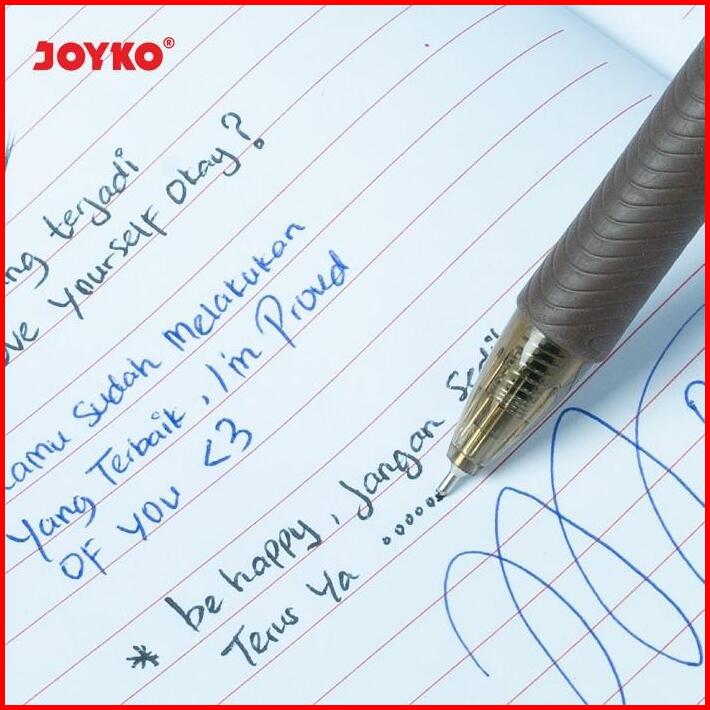 JOYKO®
terjadi
yourself Okay?
Kamu Sudah Melakukan
Yang Terbaik, I'm Proud
OF YOU <3
* be happy, Jangan
Terus Ya ......